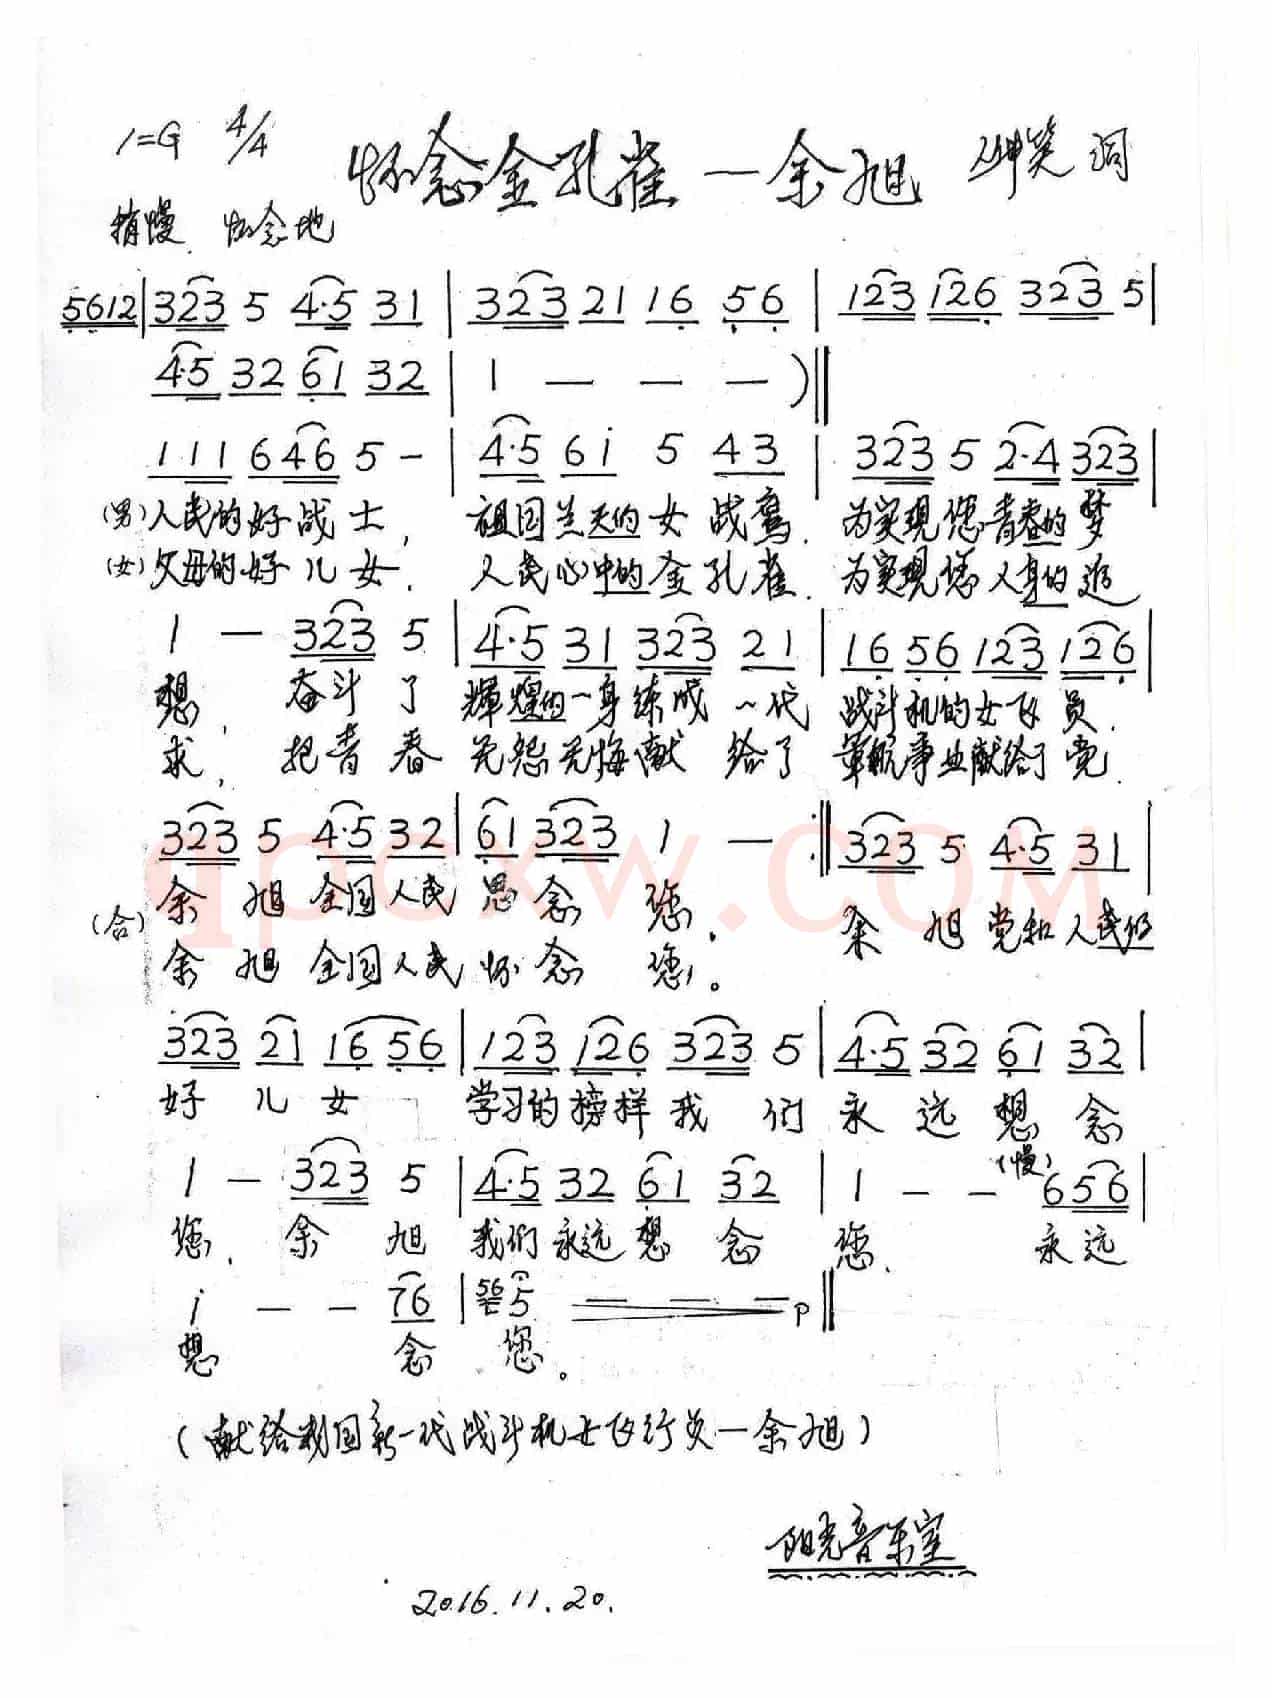 1=G 4/4
怀念金孔雀—余旭
稍慢 怀念地
5612|323 5 4·5 31|323 21 16 56|123 126 323 5|
4·5 32 61 32|1 — — —)‖
111 646 5 —|4·5 6i 5 43|323 5 2·4 323|
(男)人民的好战士, 祖国兰天的女战鹰. 为实現您青春的梦
(女)父母的好儿女. 人民心中的金孔雀. 为实現您人身的追
1 — 323 5|4·5 31 323 21|16 56 123 126|
想, 奋斗了 輝煌的一身练成一代 战斗机的女飞员.
求, 把青春 无怨无悔献给了 軍航事业献给了党.
323 5 4·5 32|61 323 1 —:‖323 5 4·5 31|
余旭全国人民思念您. 余旭党和人民的
(合)
余旭全国人民怀念您。
323 21 1656|123 126 323 5|4·5 32 61 32|
好儿女 学习的榜样我们永远想念
(慢)
1 — 323 5|4·5 32 61 32|1 — — 656|
您. 余旭 我们永远想念 您. 永远
i — — 76|56 5 — — — p‖
想 念 您。
(献给我国新一代战斗机女飞行员—余旭)
阳光音乐室
2016.11.20.
qpcxw.com